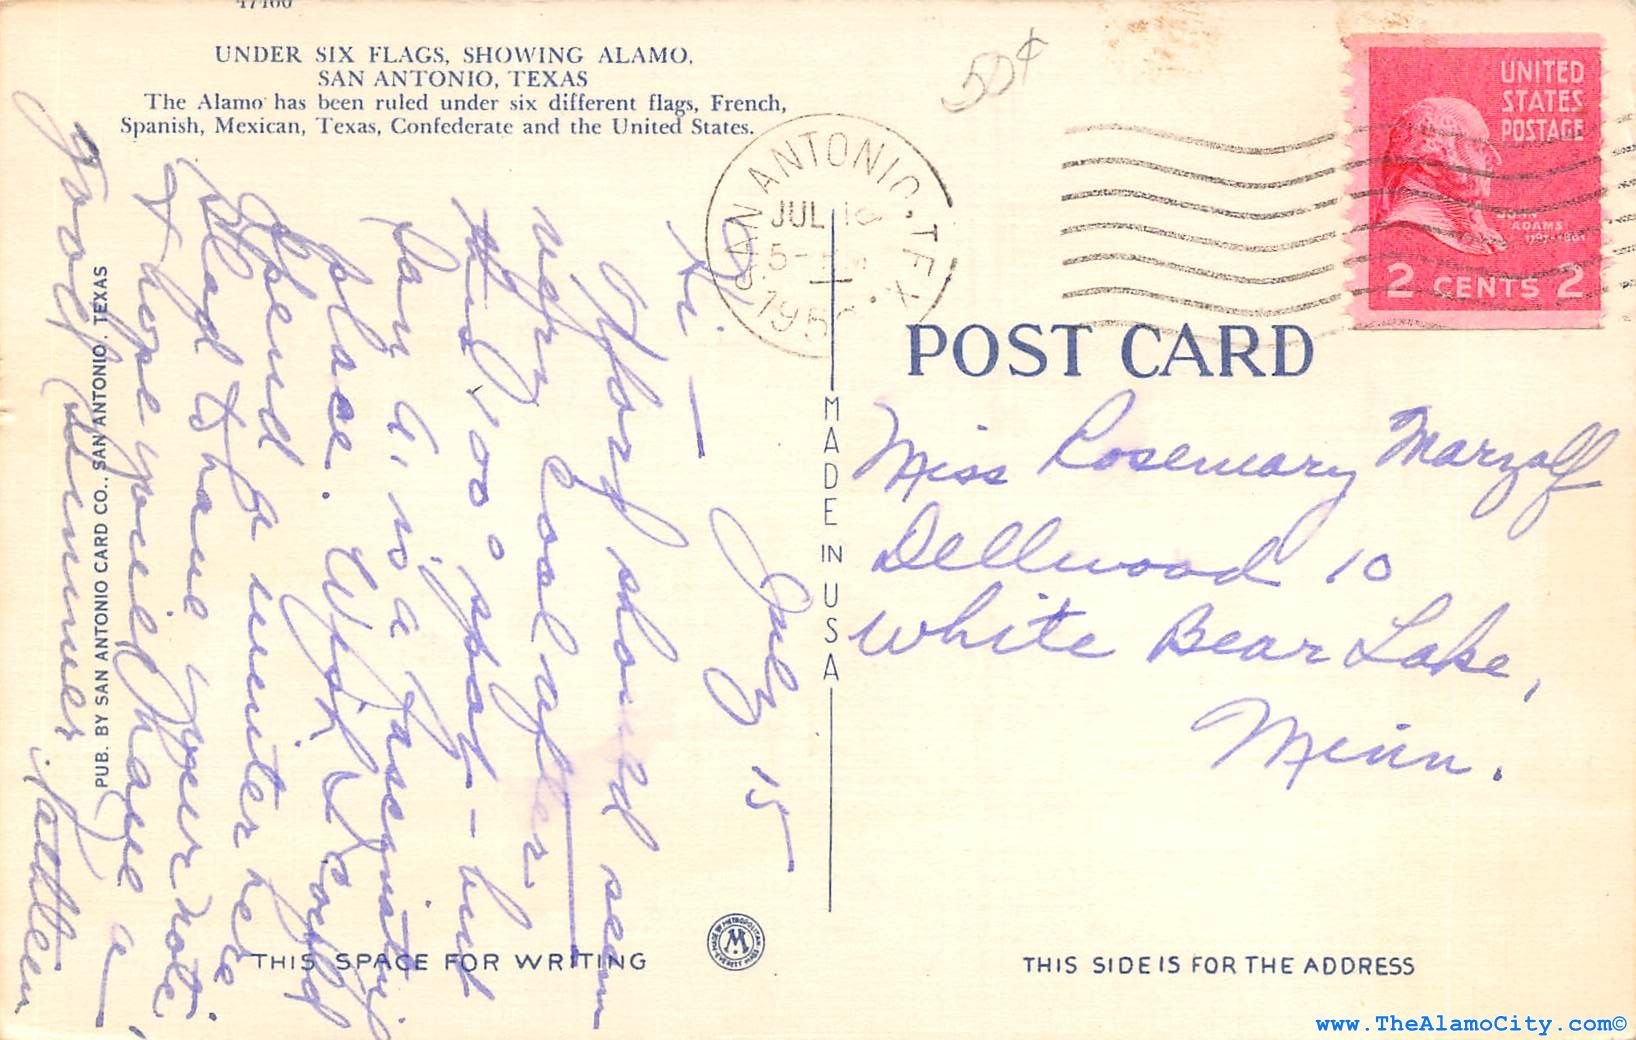 47100
UNDER SIX FLAGS, SHOWING ALAMO,
SAN ANTONIO, TEXAS
The Alamo has been ruled under six different flags, French,
Spanish, Mexican, Texas, Confederate and the United States.
50¢
SAN ANTONIO, TEX.
JUL
5-PM
UNITED
STATES
POSTAGE
JOHN
ADAMS
1797-1801
2 CENTS 2
POST CARD
July 15
Hi —
Story should seem
very cool after
this 100° spot – but
San A. is a fascinating
place. Wish I could
spend the winter here
Glad to have your note,
& hope you'll have a
good summer. Kathleen
PUB. BY SAN ANTONIO CARD CO., SAN ANTONIO, TEXAS
MADE IN USA
Miss Rosemary Marzolf
Dellwood 10
White Bear Lake,
Minn.
THIS SPACE FOR WRITING
MADE BY METROPOLITAN
M
EVERETT MASS
THIS SIDE IS FOR THE ADDRESS
www.TheAlamoCity.com©